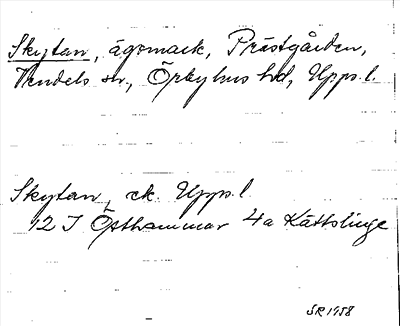 Skytan, ägomark, Prästgården,
Vendels sn, Örbyhus hd, Upps. l.
Skytan, ek. Upps. l
12 I Östhammar 4a Kättslinge
SR 1958